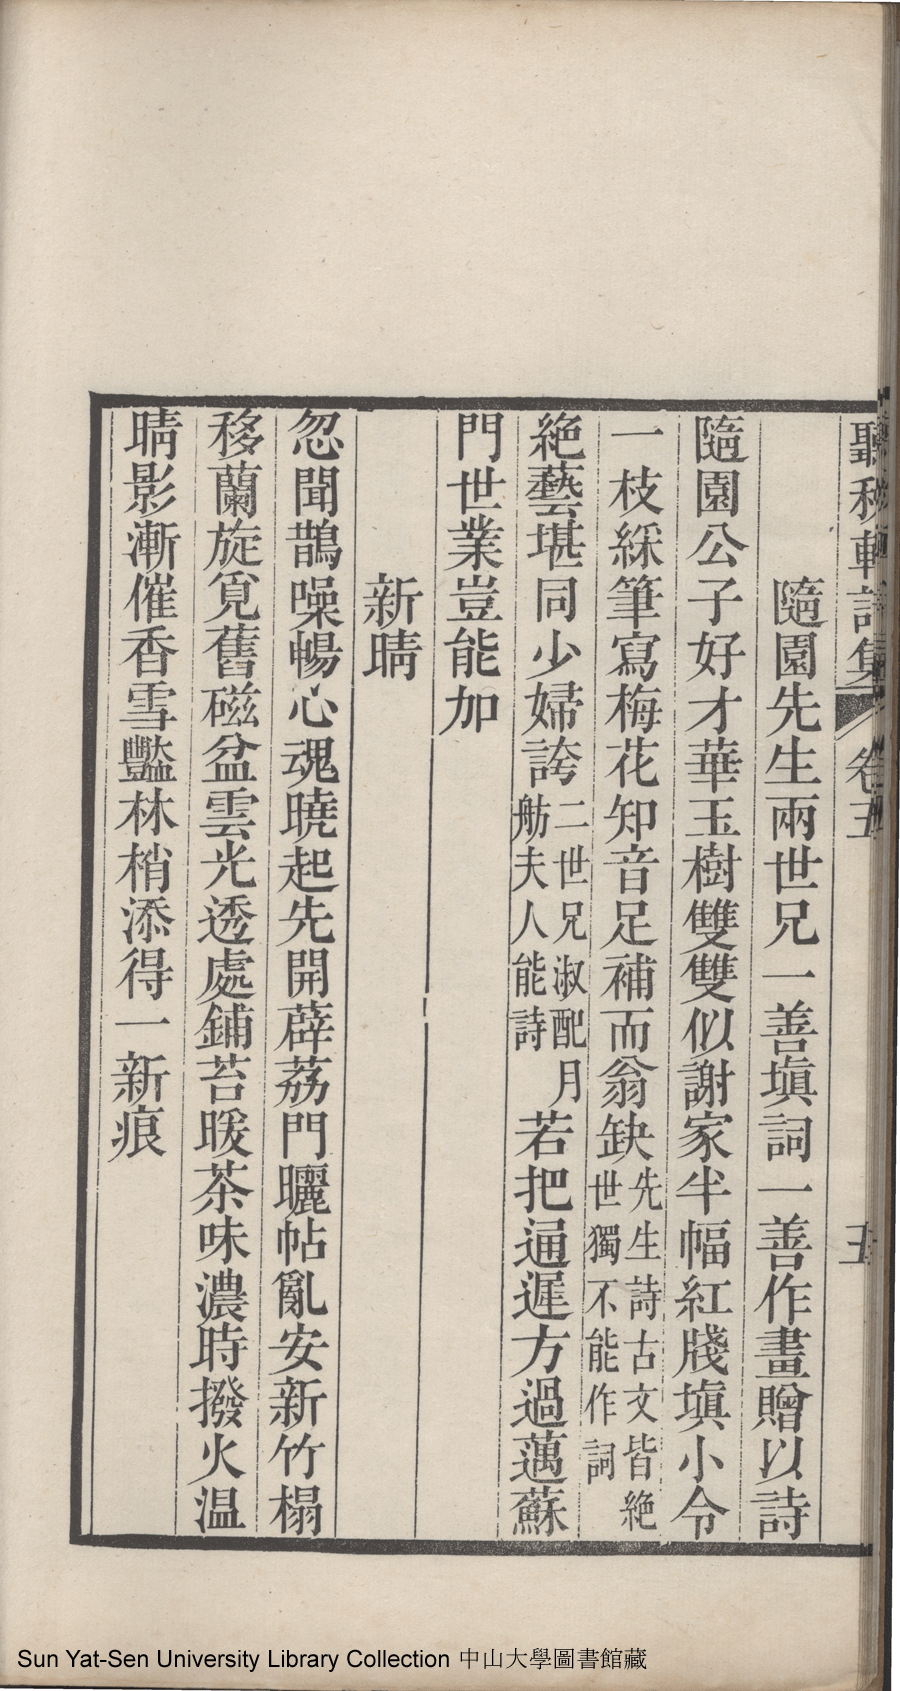 聽秋軒詩集 卷五 五
隨園先生兩世兄一善塡詞一善作畫贈以詩
隨園公子好才華玉樹雙雙似謝家半幅紅牋塡小令
一枝綵筆寫梅花知音足補而翁缺先生詩古文皆絶世獨不能作詞
絶藝堪同少婦誇二世兄淑配月舫夫人能詩若把通遲方過薖蘇
門世業豈能加
新晴
忽聞鵲噪暢心魂曉起先開薜荔門曬帖亂安新竹榻
移蘭旋覓舊磁盆雲光透處鋪苔暖茶味濃時撥火温
晴影漸催香雪豔林梢添得一新痕
Sun Yat-Sen University Library Collection 中山大學圖書館藏